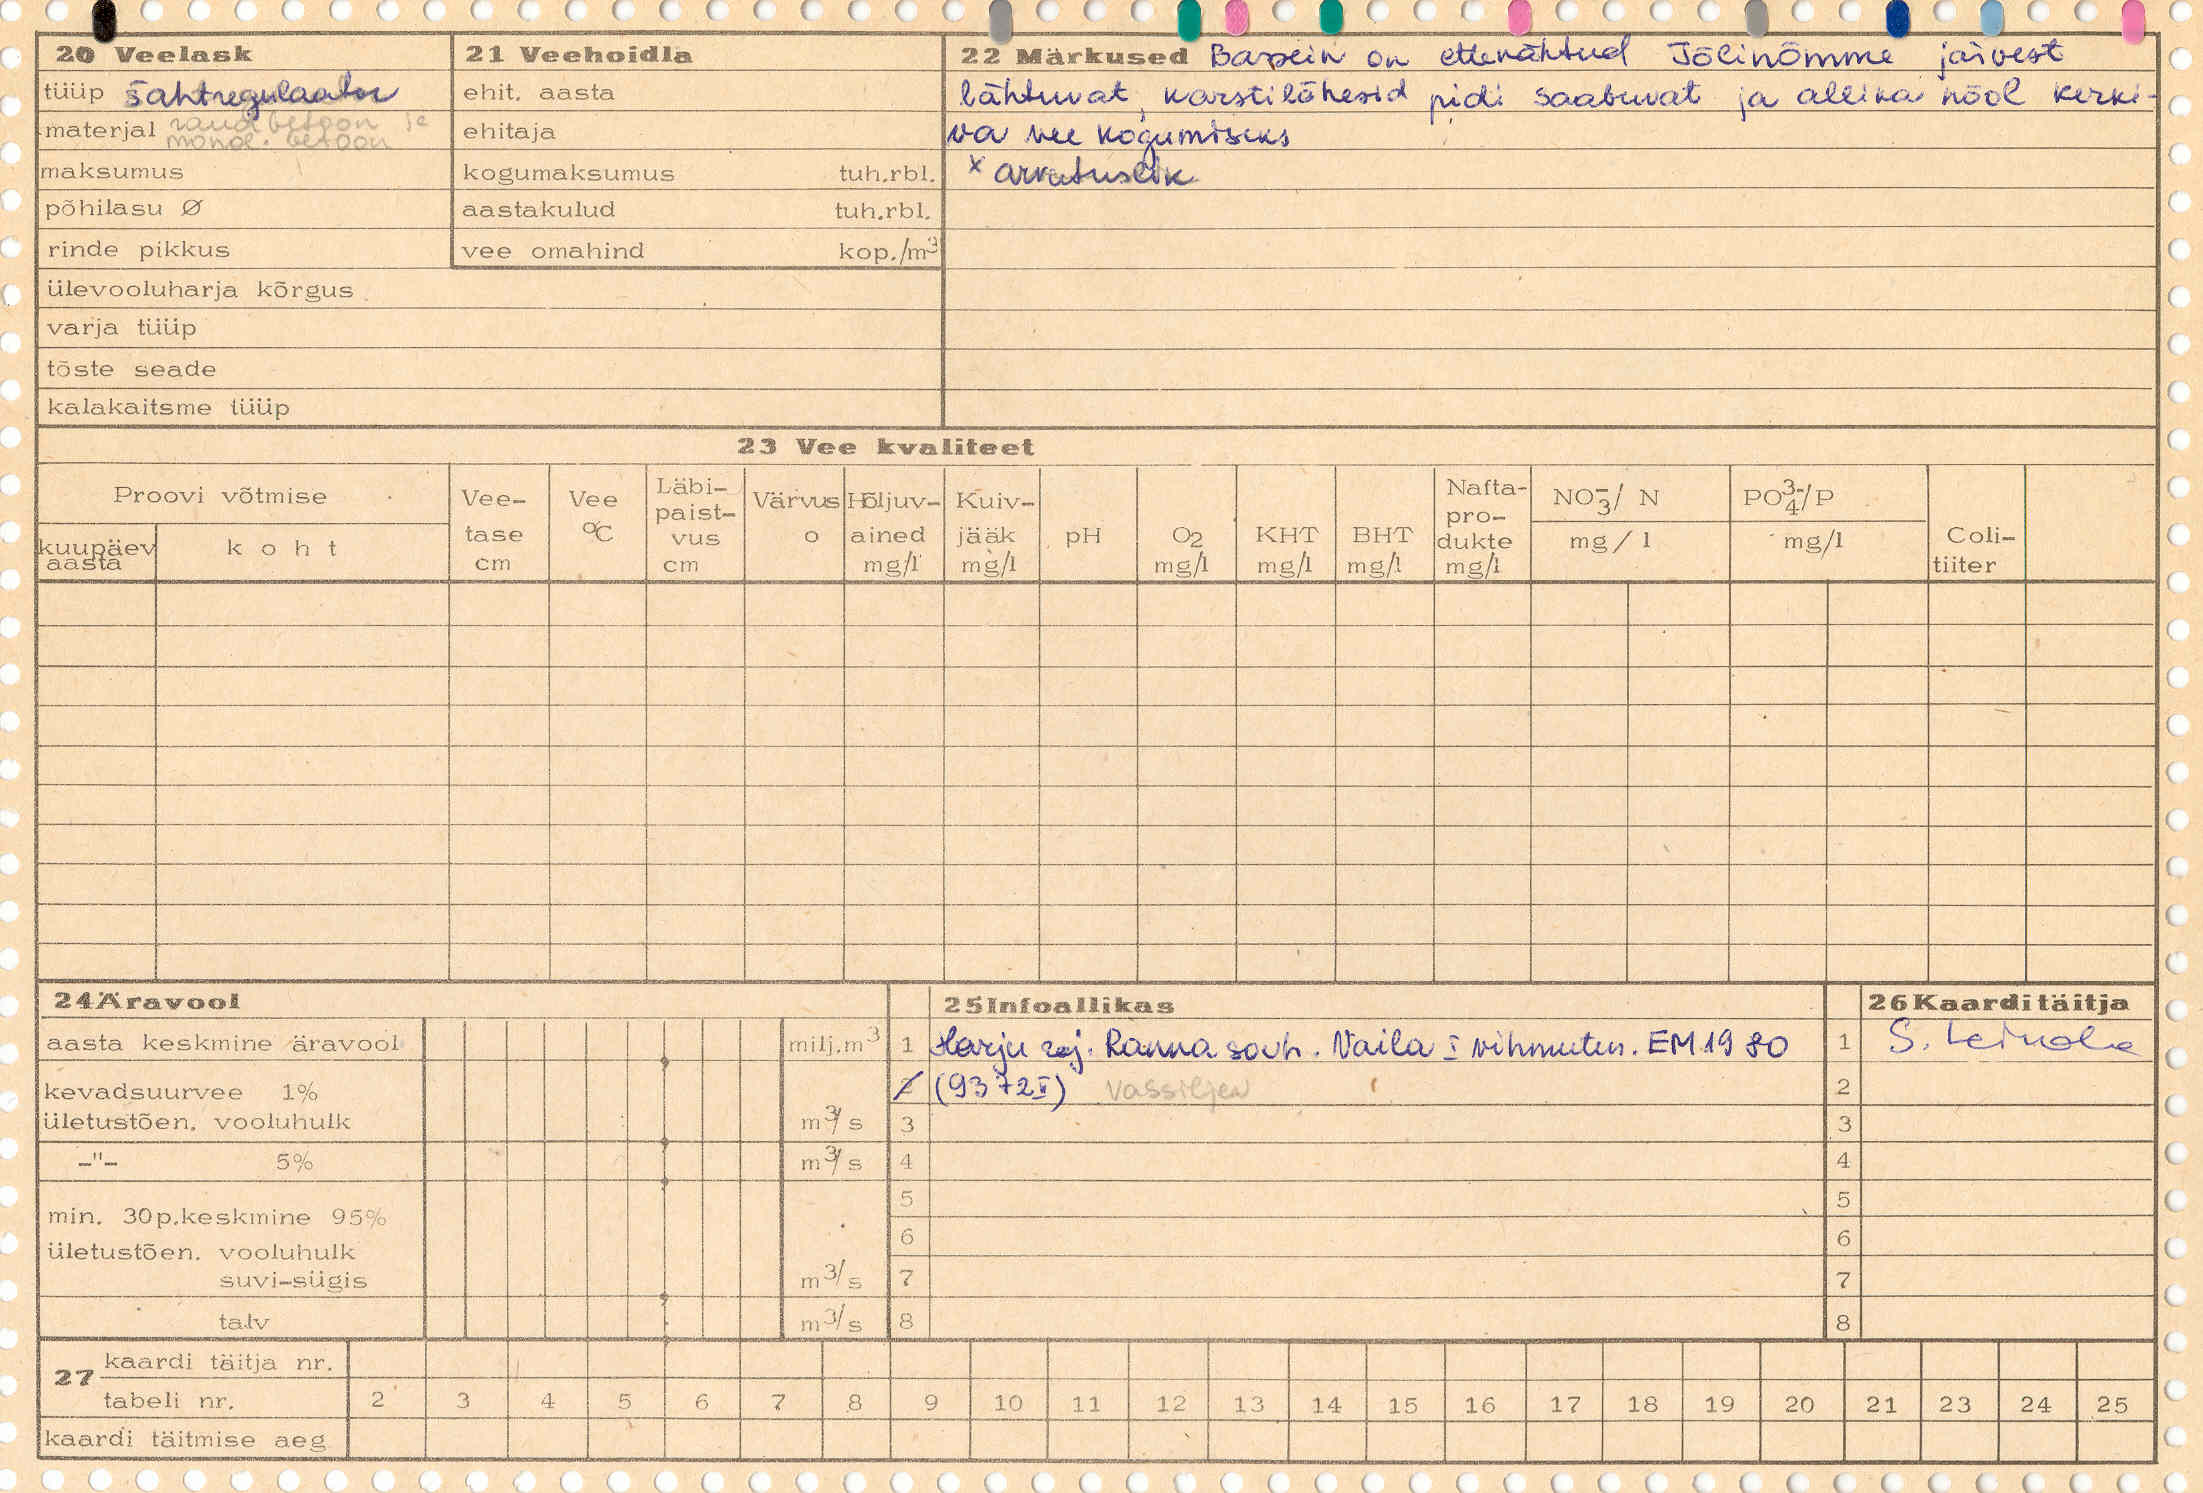 20 Veelask
tüüp šahtregulaator
materjal raudbetoon ja
monol. betoon
maksumus
põhilasu Ø
rinde pikkus
ülevooluharja kõrgus
varja tüüp
tõste seade
kalakaitsme tüüp
21 Veehoidla
ehit. aasta
ehitaja
kogumaksumus tuh.rbl.
aastakulud tuh.rbl.
vee omahind kop./m3
22 Märkused Bassein on ettenähtud Jõlinõmme järvest
lähtuvat, karstilõhesid pidi saabuvat ja allika nõol kerki-
va vee kogumiseks
x arvutuslik
23 Vee kvaliteet
Proovi võtmise
kuupäev
aasta
koht
Vee-
tase
cm
Vee
°C
Läbi-
paist-
vus
cm
Värvus
o
Hõljuv-
ained
mg/l
Kuiv-
jääk
mg/l
pH
O2
mg/l
KHT
mg/l
BHT
mg/l
Nafta-
pro-
dukte
mg/l
NO3-/ N
mg/l
PO43-/P
mg/l
Coli-
tiiter
24 Äravool
aasta keskmine äravool milj.m3
kevadsuurvee 1%
ületustõen. vooluhulk m3/s
-"- 5% m3/s
min. 30p.keskmine 95%
ületustõen. vooluhulk
suvi-sügis m3/s
talv m3/s
25 Infoallikas
1 Harju raj. Ranna sovh. Naila I vihmutus. EM 1980
2 (9372 I) Vassiljev
3
4
5
6
7
8
26 Kaarditäitja
1 S. Leinola
2
3
4
5
6
7
8
27 kaardi täitja nr.
tabeli nr. 2 3 4 5 6 7 8 9 10 11 12 13 14 15 16 17 18 19 20 21 23 24 25
kaardi täitmise aeg